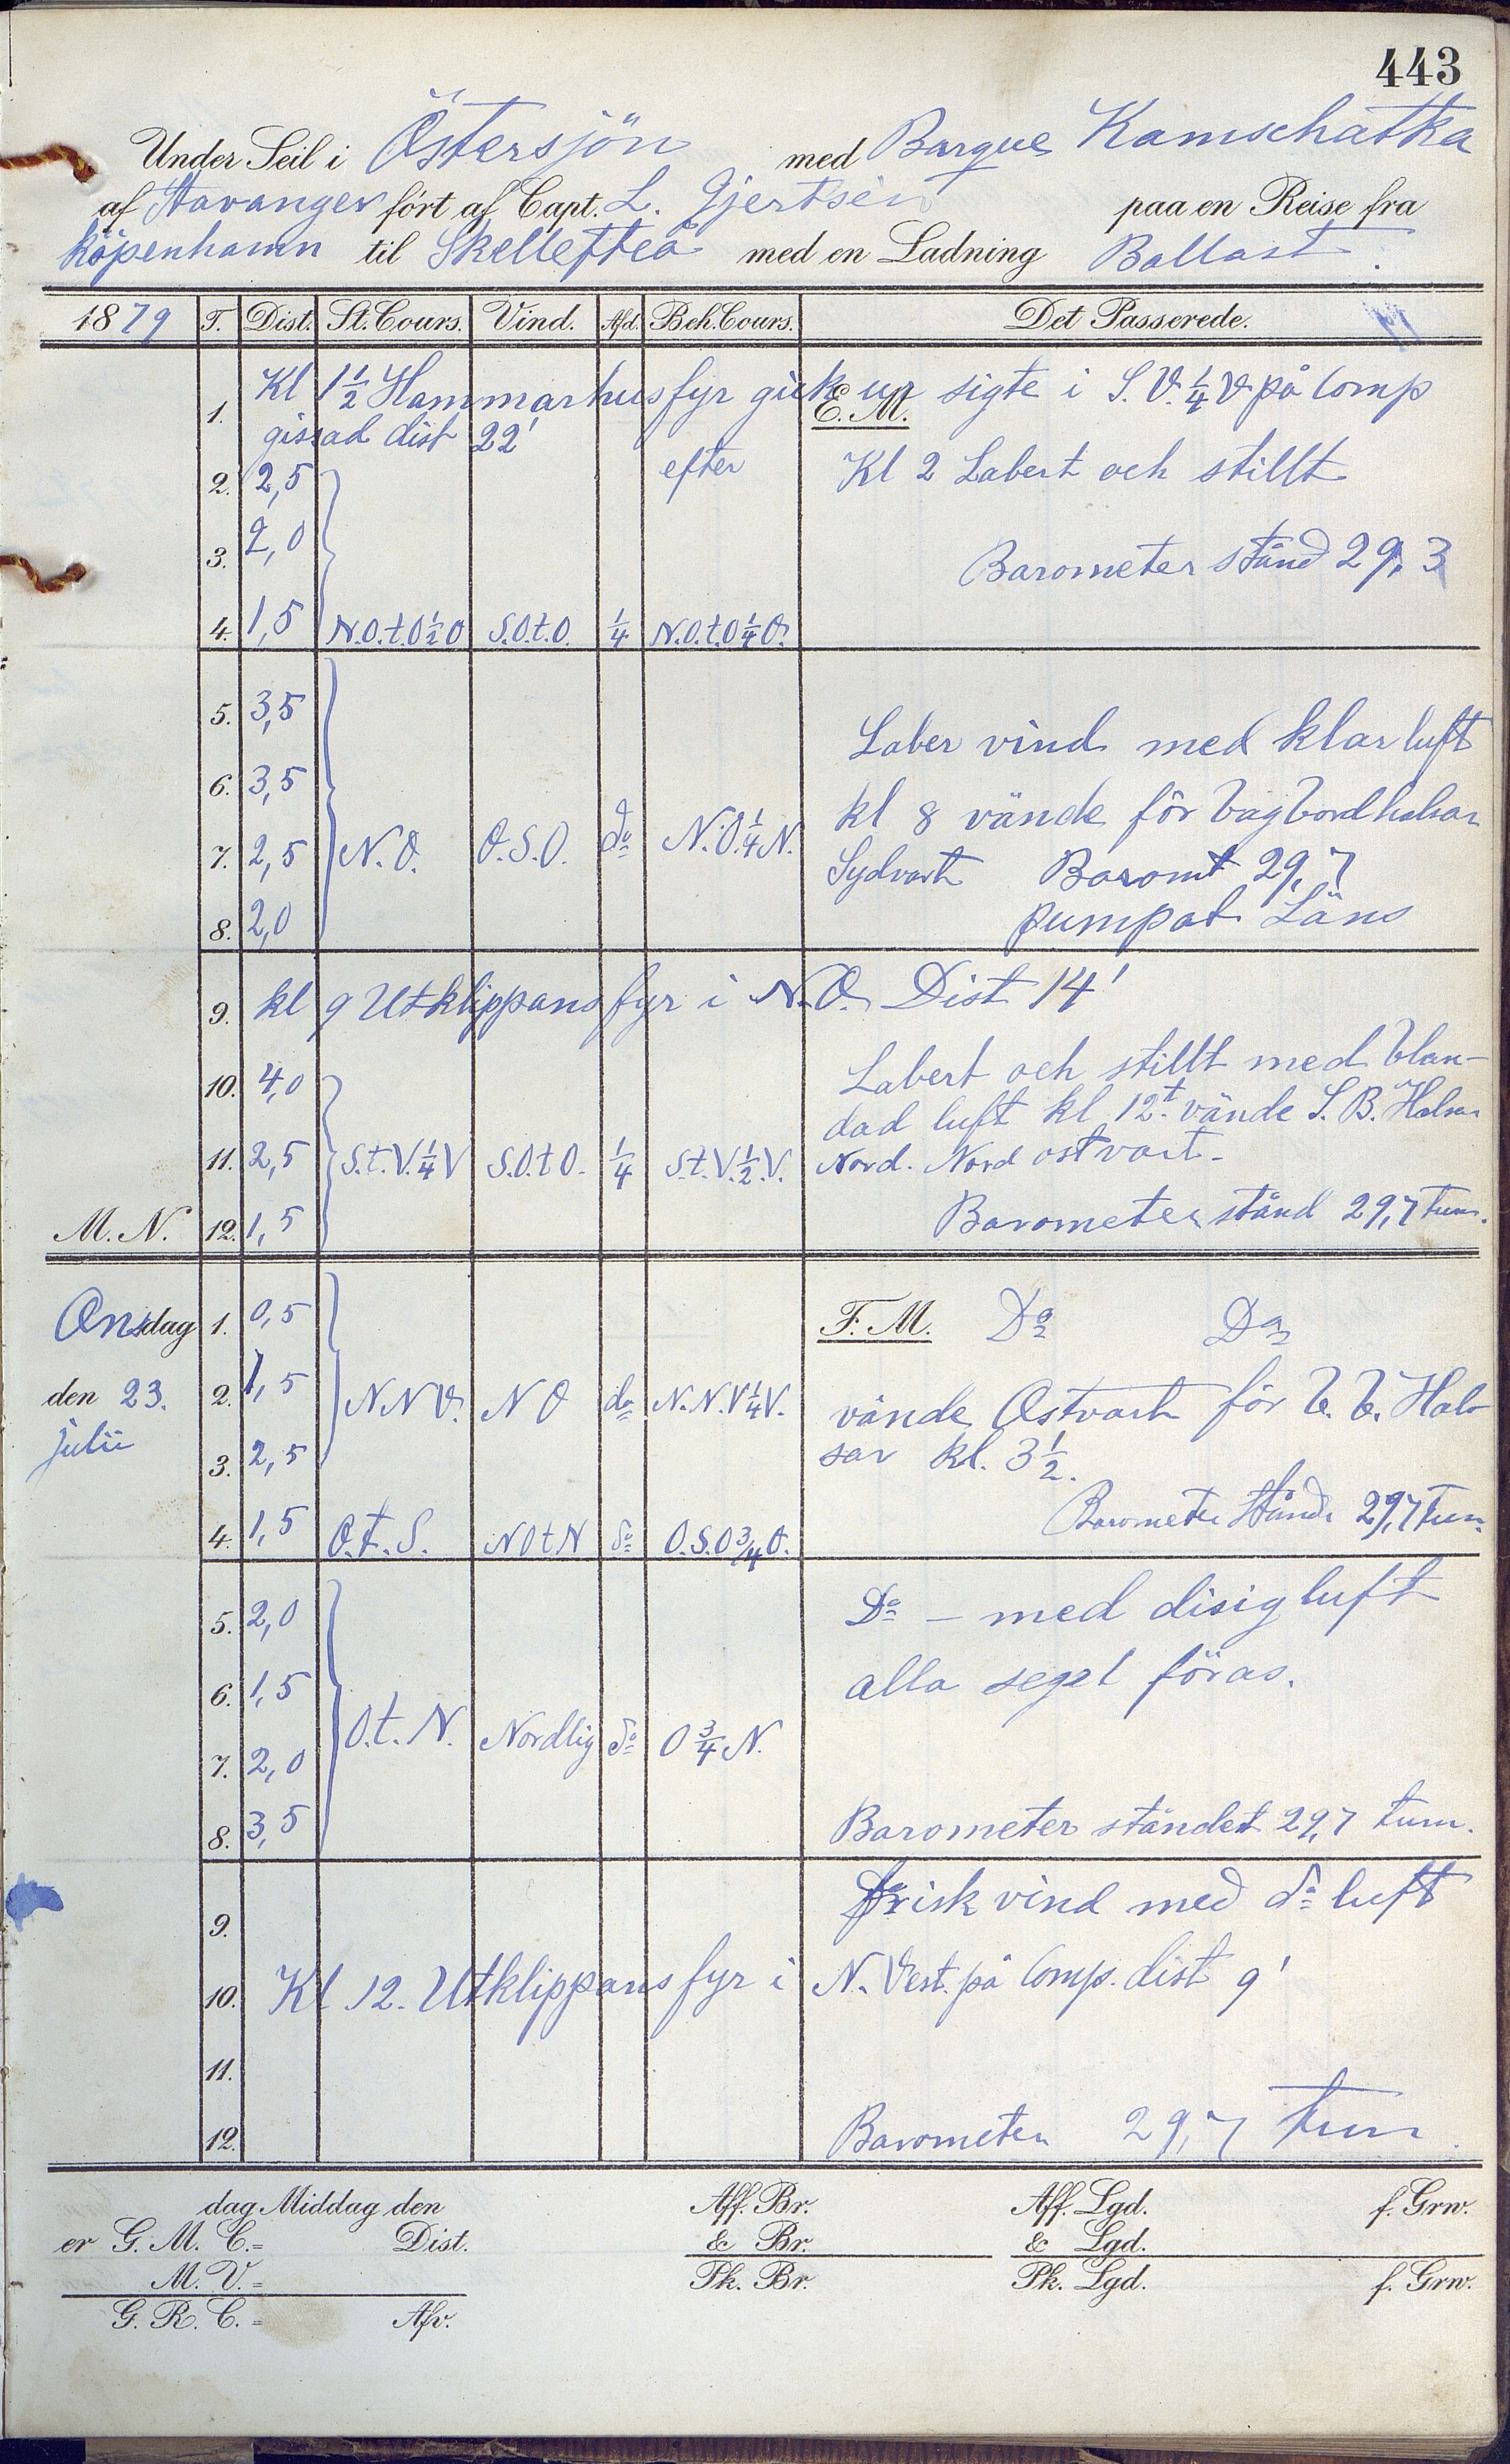 443
Under Seil i Östersjön med Barque Kamschatka
af Stavanger ført af Capt. L. Gjertsen paa en Reise fra
köpenhamn til Skellefteå med en Ladning Ballast.
1879 T. Dist. St. Cours. Vind. Afd. Beh. Cours. Det Passerede.
1. Kl 1 1/2 Hammarhus fyr gick ur sigte i S.V. 1/4 V på Comp
E.M.
gissad dist 22'
2. 2,5 efter Kl 2 Labert och stillt
3. 2,0 Barometer stånd 29,3
4. 1,5 N.O.t.O 1/2 O S.O.t.O. 1/4 N.O.t.O 1/4 O.
5. 3,5 Laber vind med klar luft
6. 3,5 kl 8 vände för bagbord halsar
7. 2,5 N.O. O.S.O. do N.O. 1/4 N. Sydvart Baromt 29,7
8. 2,0 pumpat Läns
9. kl 9 Utklippans fyr i N.O. Dist 14'
10. 4,0 Labert och stillt med blan-
dad luft kl 12t. vände S.B. Halsar
11. 2,5 S.t.V. 1/4 V S.O.t O. 1/4 S.t.V. 1/2 V. Nord. Nord ostvart.
M.N. 12. 1,5 Barometer stånd 29,7 tum.
Onsdag 1. 0,5 F.M. Do Do
den 23. 2. 1,5 N N V. N O do N.N.V 1/4 V. vände Ostvart för b.b. Hal-
julii 3. 2,5 sar kl. 3 1/2.
4. 1,5 O.t.S. N O t N do O.S.O 3/4 O. Barometer stånd 29,7 tum.
5. 2,0 Do – med disig luft
6. 1,5 alla segel föras.
7. 2,0 O.t.N. Nordlig do O 3/4 N.
8. 3,5 Barometer ståndet 29,7 tum.
9. frisk vind med do luft
10. Kl 12. Utklippans fyr i N. Vest. på Comp. dist 9'
11.
12. Barometer 29,7 tum.
dag Middag den Aff. Br. Aff. Lgd. f. Grw.
er G. M. C.= Dist. & Br. & Lgd.
M. V.= Pk. Br. Pk. Lgd. f. Grw.
G. R. C.= Afv.